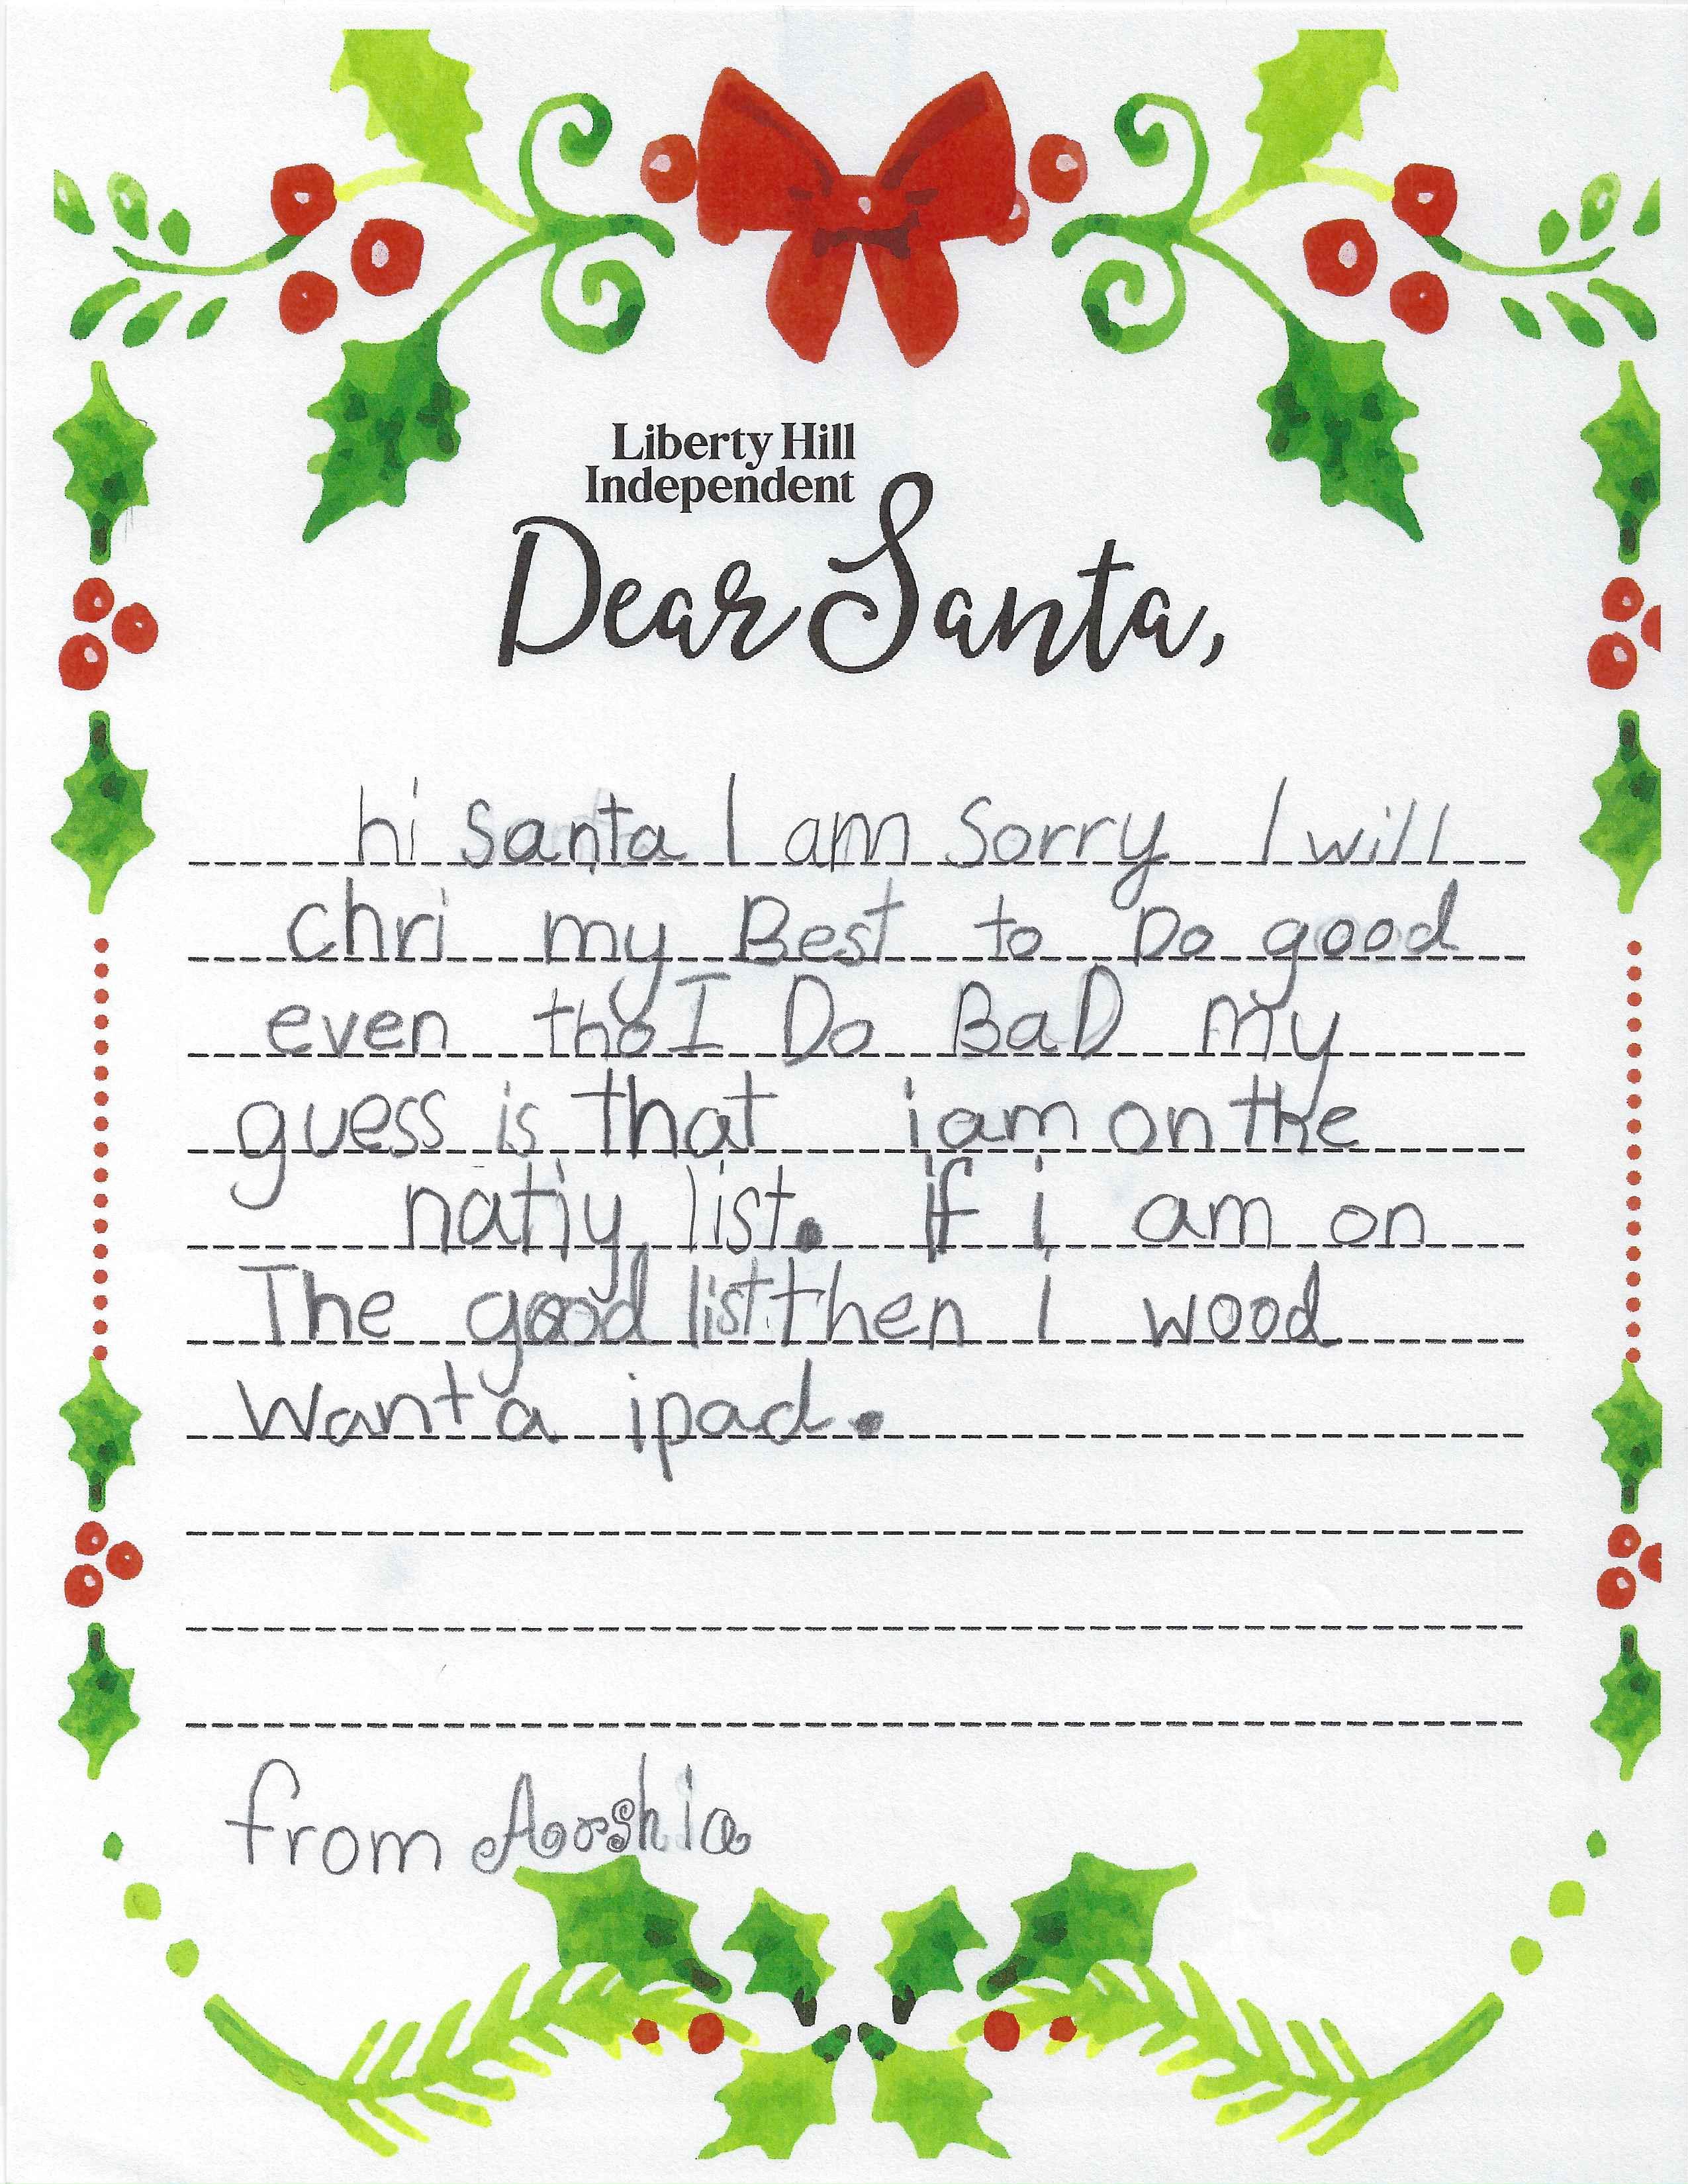 Liberty Hill
Independent
Dear Santa,
hi santa I am sorry I will
chri my Best to Do good
even tho I Do BaD my
guess is that i am on the
natiy list. if i am on
The good list then I wood
want a ipad.
from Arshia